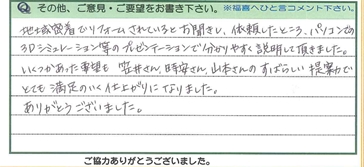 Q その他、ご意見・ご要望をお書き下さい。 ※福喜へひと言コメント下さい。
地域密着でリフォームされているとお聞きし、依頼したところ、パソコンでの
3Dシミュレーション等のプレゼンテーションで分かりやすく説明して頂きました。
いくつかあった要望も 笹井さん、時安さん、山本さんのすばらしい提案力で
とても満足のいく仕上がりになりました。
ありがとうございました。
ご協力ありがとうございました。